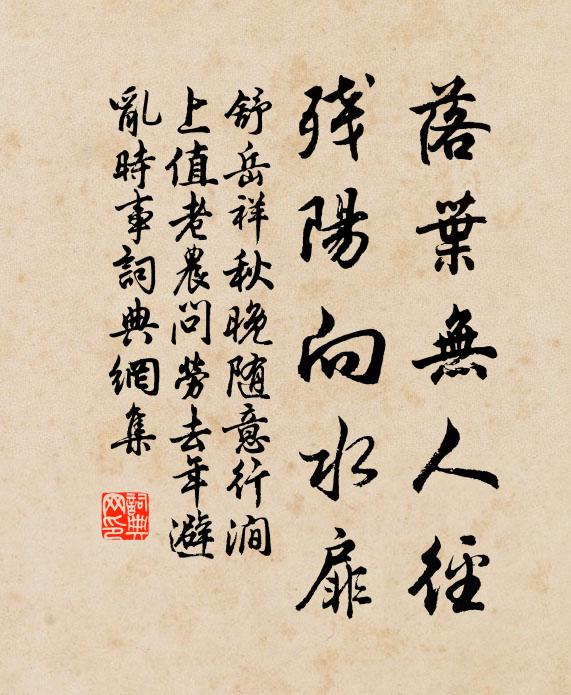 落葉無人徑
残陽向水扉
舒岳祥秋晚随意行澗
上值老農問勞去年避
亂時事詞典網集
詞典网印